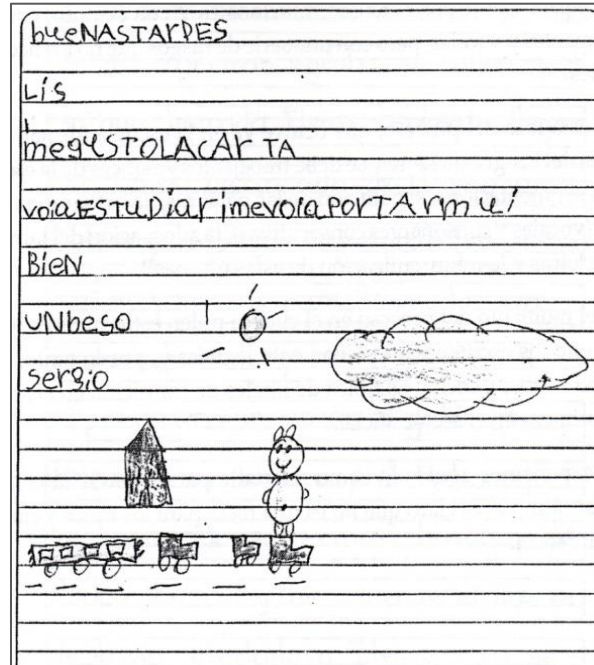 bueNASTARDES
Lís
megUSTOLACAr TA
voiaESTuDiarimevoiaPORTArmui
BieN
UNbeso
sergio